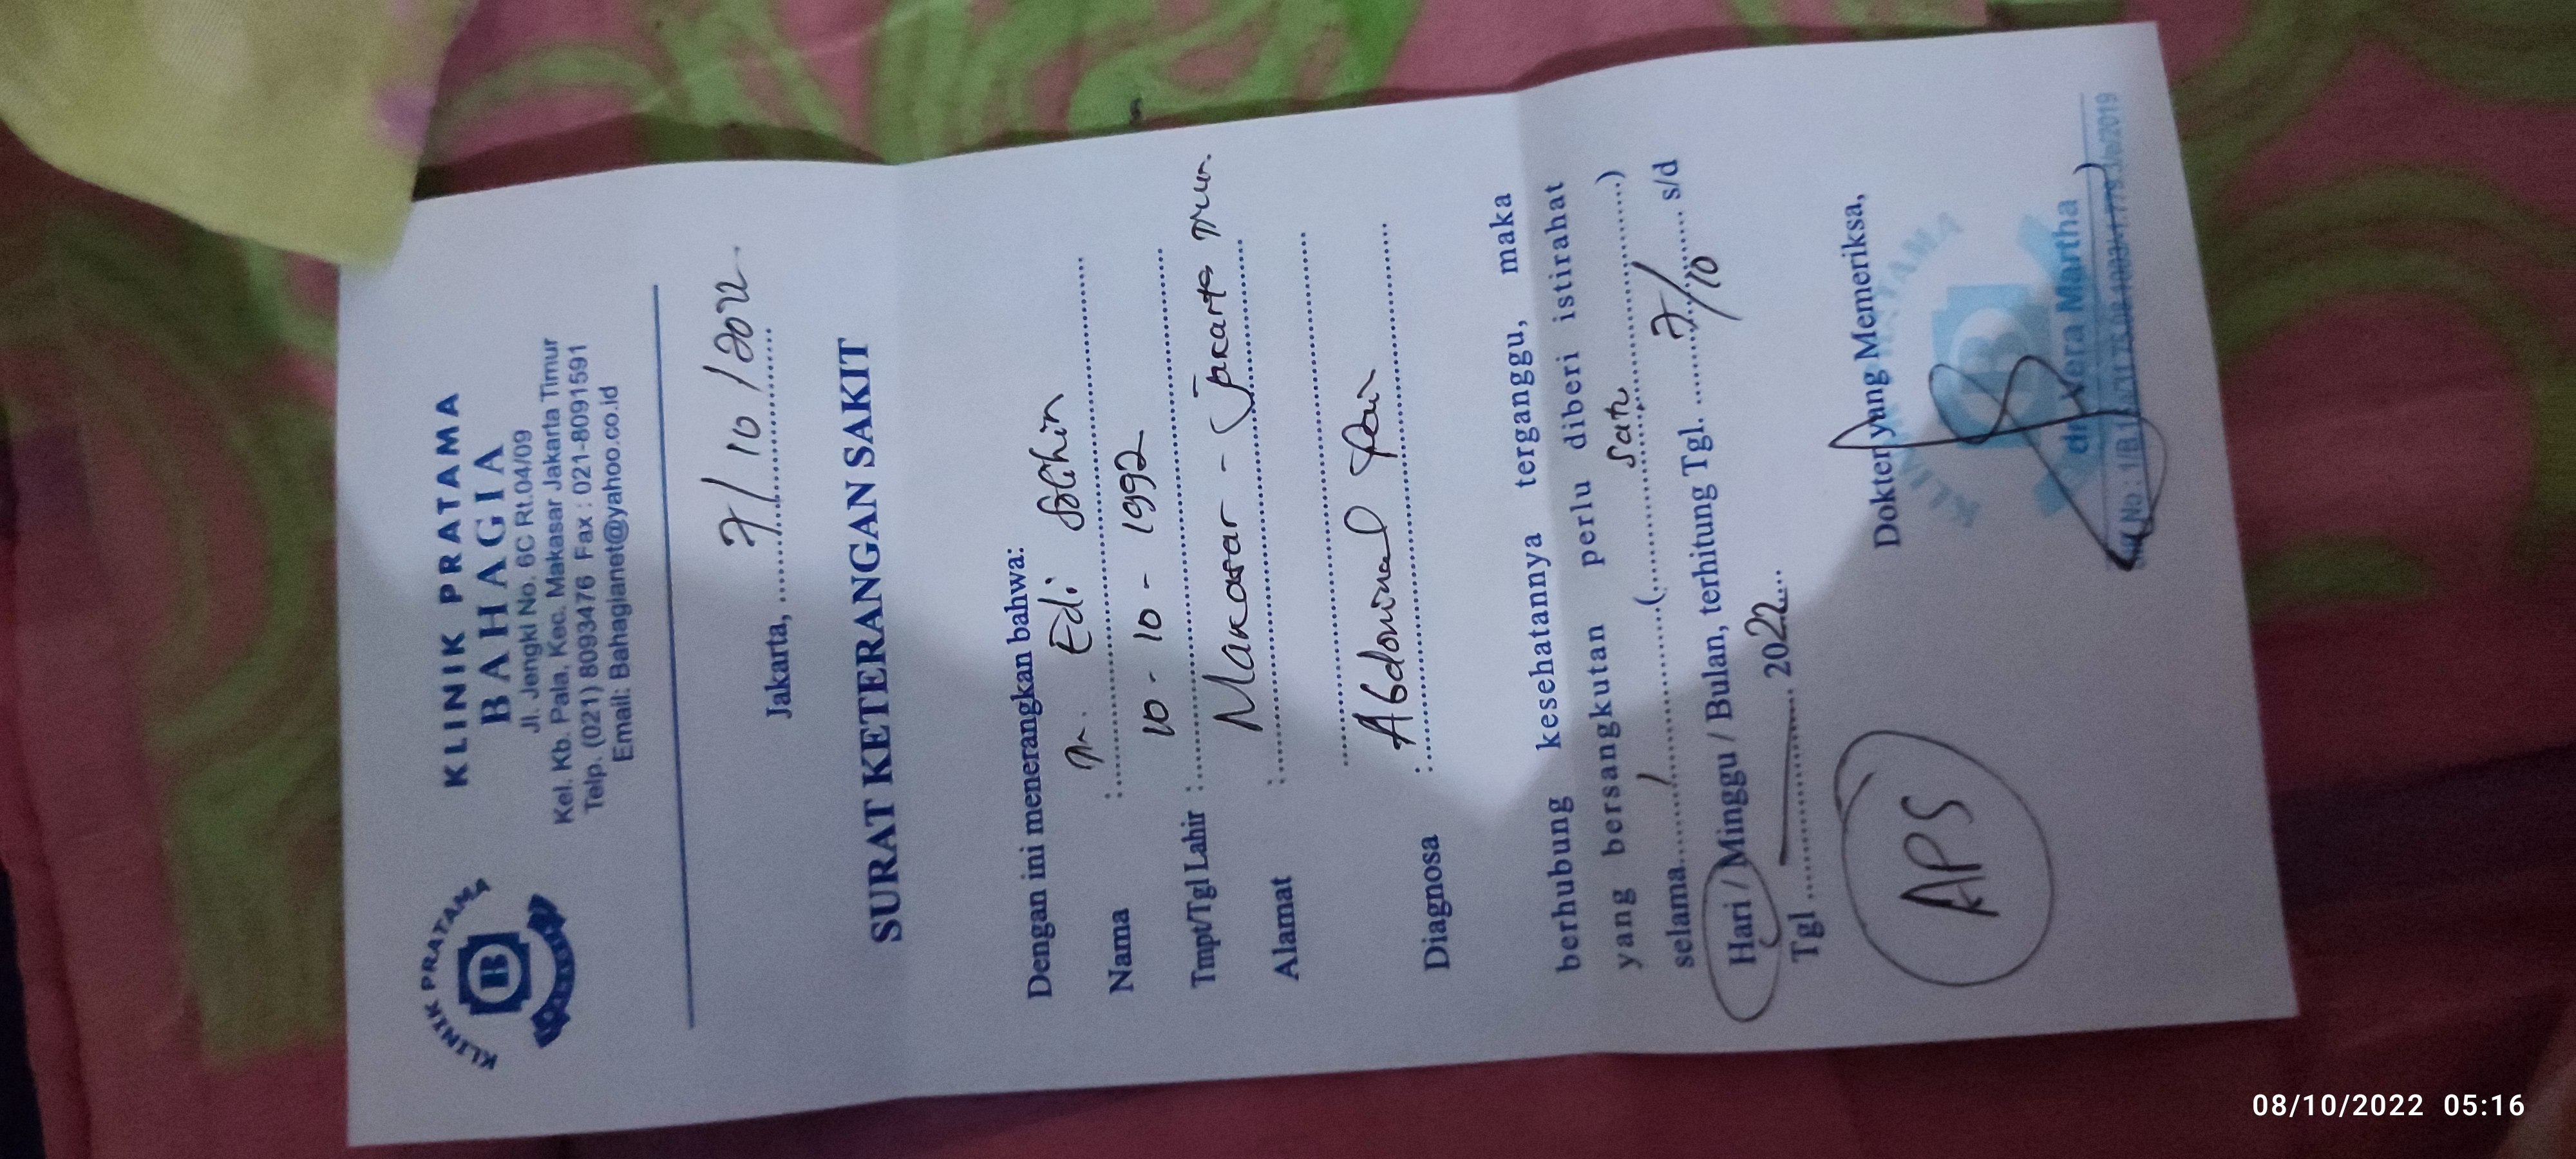 KLINIK PRATAMA
KLINIK PRATAMA
B
BAHAGIA
BAHAGIA
Jl. Jengki No. 6C Rt.04/09
Kel. Kb. Pala, Kec. Makasar Jakarta Timur
Telp. (021) 8093476 Fax : 021-8091591
Email: Bahagianet@yahoo.co.id
Jakarta, 7/10/2022
SURAT KETERANGAN SAKIT
Dengan ini menerangkan bahwa:
Nama : Tn. Edi Solihin
Tmpt/Tgl Lahir : 10-10-1992
Alamat : Makasar - Jakarta Timur
Diagnosa : Abdominal Pain
berhubung kesehatannya terganggu, maka
yang bersangkutan perlu diberi istirahat
selama 1 ( satu )
Hari / Minggu / Bulan, terhitung Tgl. 7/10 s/d
Tgl 2022
Dokter yang Memeriksa,
APS
KLINIK PRATAMA
B
Vera Martha